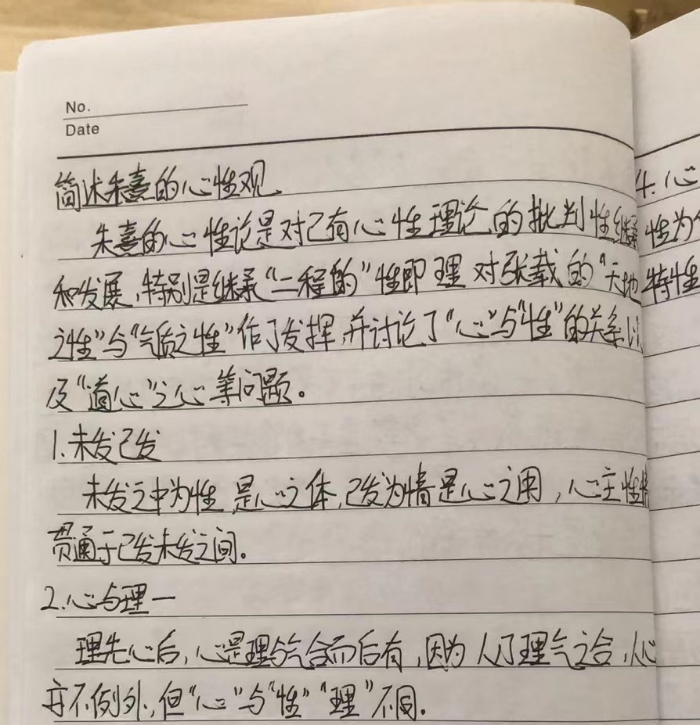 No.
Date
简述朱熹的心性观
朱熹的心性说是对已有心性理论的批判性继承
和发展,特别是继承“二程的”性即理 对张载的“天地
之性”与“气质之性”作了发挥,并讨论了“心”与“性”的关系以
及“道心”之心等问题。
1.未发已发
未发之中为性,是心之体,已发为情是心之用,心主性情
贯通于已发未发之间。
2.心与理一
理先心后,心是理与气合而后有,因为人乃理气之合,人心
亦不例外,但“心”与“性”“理”不同。
4.心
性为
特性